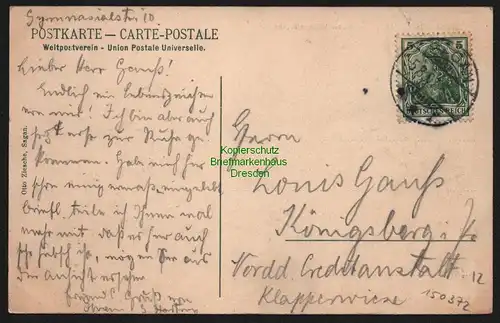 Gymnasialstr. 10.
POSTKARTE — CARTE-POSTALE
Weltpostverein - Union Postale Universelle.
Lieber Herr Gauß!
Endlich ein Lebenszeichen
von mir! Ich bin aber auch
jetzt erst zur Ruhe ge-
kommen. Habe mich hier
schon einigermaßen eingelebt
briefl. teile ich Ihnen mal
mehr mit, daß es hier auch
so hübsch ist, mögen Sie aus
der Ansicht ersehen
Gruß von
Otto Ziesche, Sagan.
5
DEUTSCHES REICH
Kopierschutz
Briefmarkenhaus
Dresden
Herrn
Louis Gauß
Königsberg i/
Nordd. Creditanstalt
Klapperwiese
12
150372